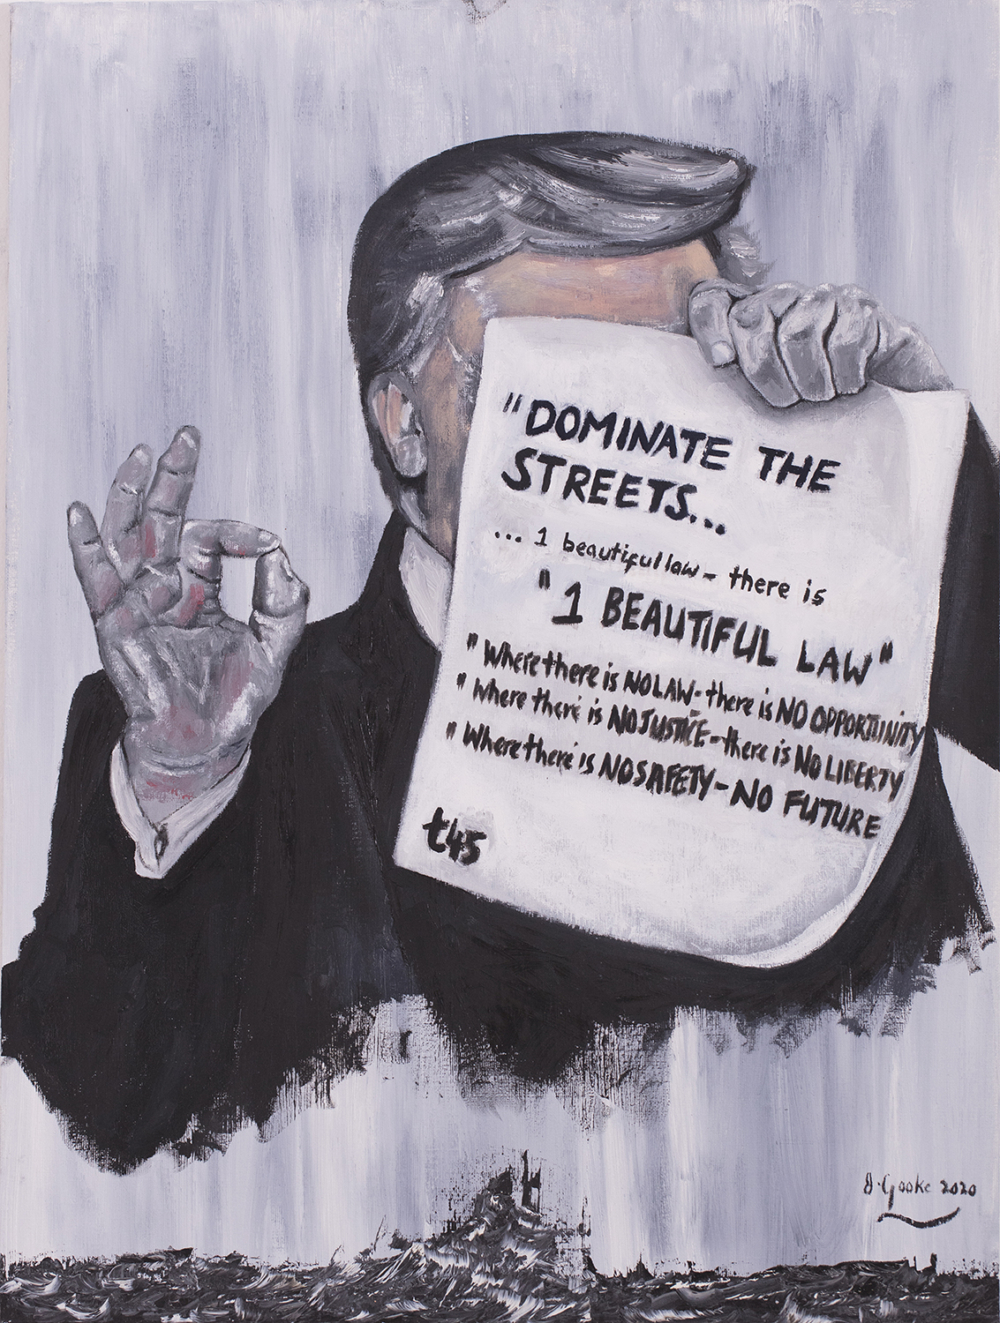 "DOMINATE THE
STREETS...
... 1 beautiful law - there is
"1 BEAUTIFUL LAW"
"Where there is NO LAW - there is NO OPPORTUNITY
"Where there is NO JUSTICE - there is NO LIBERTY
"Where there is NO SAFETY - NO FUTURE
t45
J. Gooke 2020